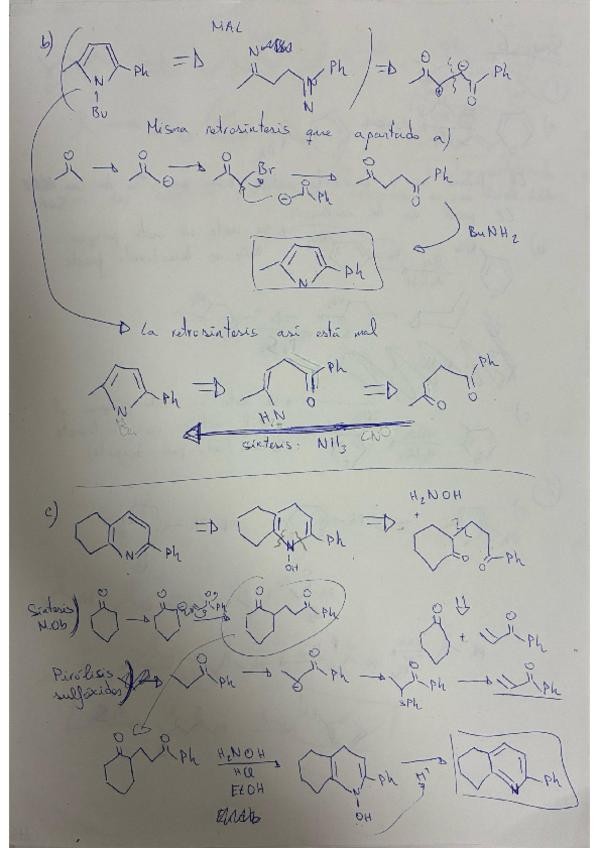 MAL
b)
Ph
N
Bu
Ph
N
O
Ph
O
Misma retrosíntesis que apartado a)
O
O
O
Br
O
Ph
O
Ph
O
BuNH2
N
Ph
La retrosíntesis así está mal
Ph
N
Bu
Ph
O
H2N
Ph
O
O
síntesis: NH3
c)
N
Ph
N
OH
Ph
H2NOH
+
O
O
Ph
Síntesis
N.Ob
O
O
O
Ph
O
O
Ph
O
+
O
Ph
Pirólisis
sulfóxidos
O
Ph
O
Ph
O
Ph
SPh
O
Ph
O
O
Ph
H2NOH
HCl
EtOH
N
Ph
OH
H+
N
Ph